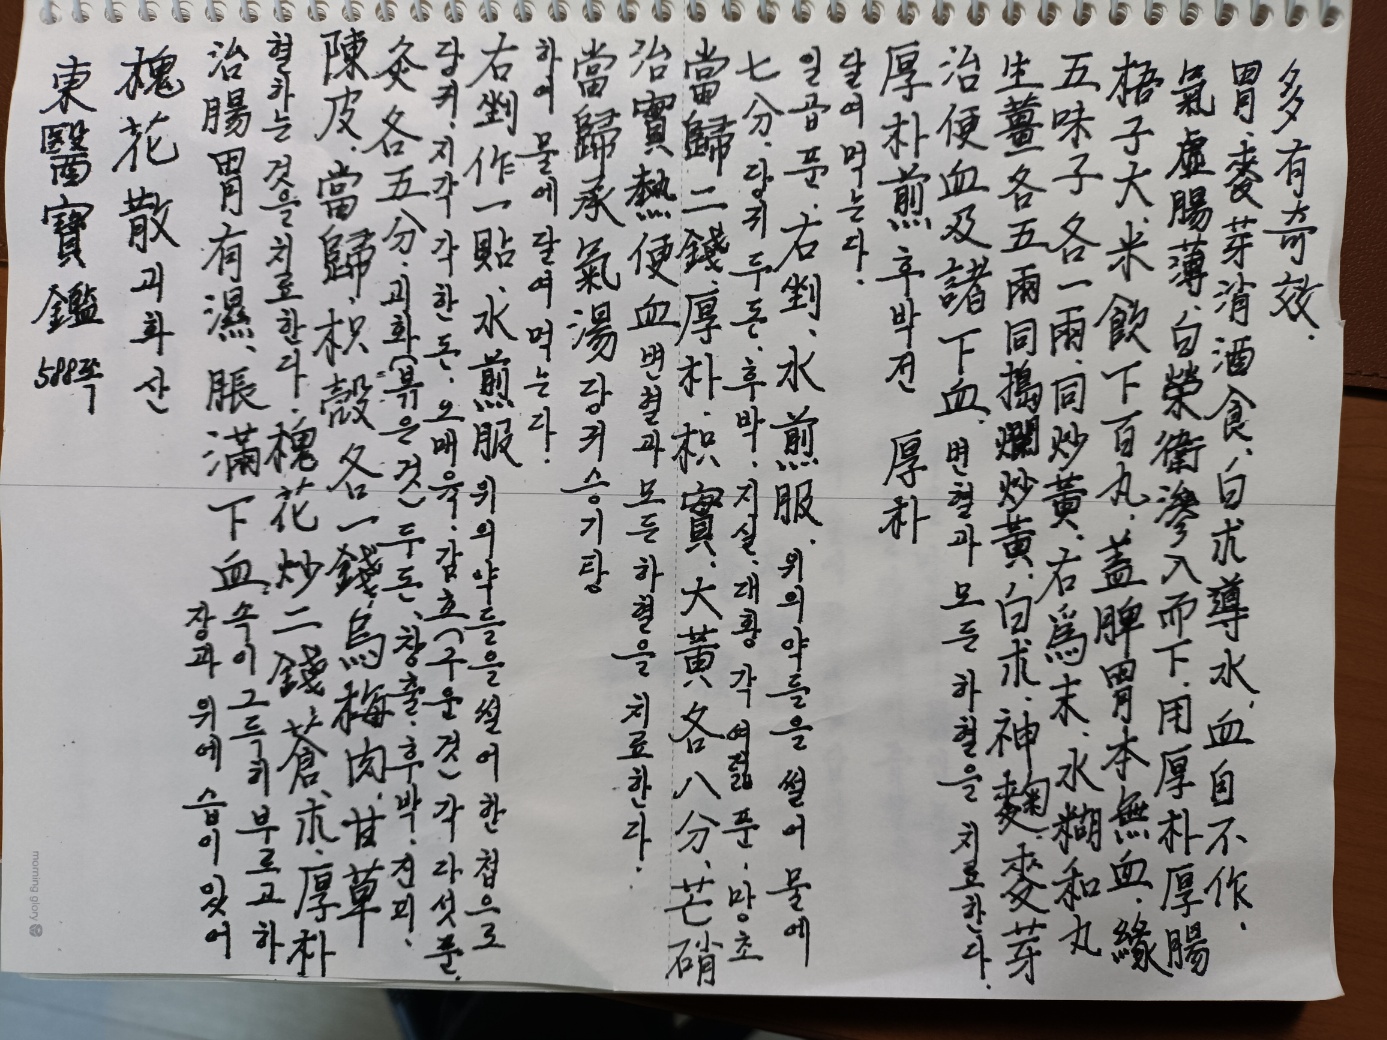 東醫寶鑑 588쪽
槐花散 괴화산
治腸胃有濕、脹滿下血. 장과 위에 습이 있어
속이 그득히 부르고 하
혈하는 것을 치료한다. 槐花炒二錢、蒼朮、厚朴
陳皮、當歸、枳殼各一錢、烏梅肉、甘草
灸各五分. 괴화(볶은 것) 두 돈、창출.후박.진피.
당귀.지각 각 한 돈.오매육.감초(구운 것) 각 다섯 푼.
右剉作一貼、水煎服 위의 약들을 썰어 한 첩으로
하여 물에 달여 먹는다.
當歸承氣湯 당귀승기탕
治實熱便血 변혈과 모든 하혈을 치료한다.
當歸二錢、厚朴、枳實、大黃各八分、芒硝
七分. 당귀 두 돈.후박.지실.대황 각 여덟 푼.망초
일곱 푼. 右剉、水煎服. 위의 약들을 썰어 물에
달여 먹는다.
厚朴煎 후박전 厚朴
治便血及諸下血. 변혈과 모든 하혈을 치료한다.
生薑各五兩同搗爛炒黃、白朮、神麴、麥芽
五味子各一兩、同炒黃. 右爲末、水糊和丸
梧子大、米飮下百丸. 蓋脾胃本無血、緣
氣虛腸薄、自榮衛滲入而下. 用厚朴厚腸
胃、麥芽消酒食、白朮導水、血自不作.
多有奇效.
morning glory